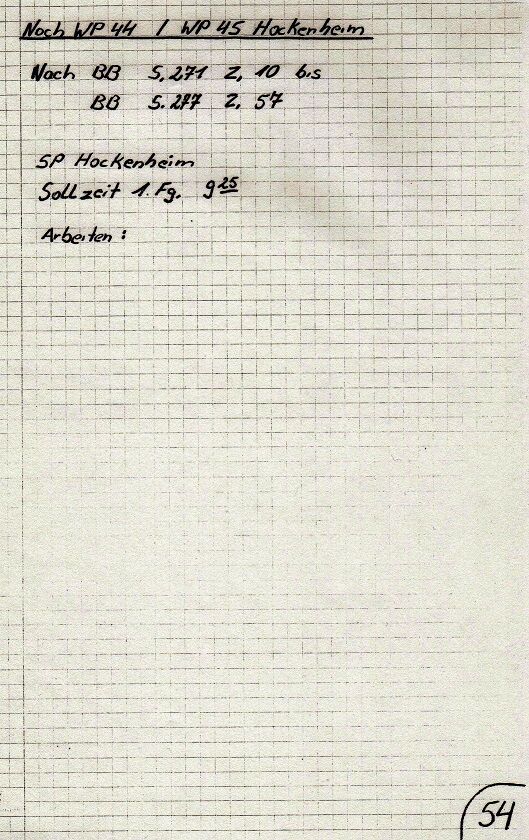 Nach WP 44 / WP 45 Hockenheim
Nach BB S. 271 Z. 10 bis
BB S. 277 Z. 57
SP Hockenheim
Sollzeit 1. Fg. 9 25
Arbeiten :
54